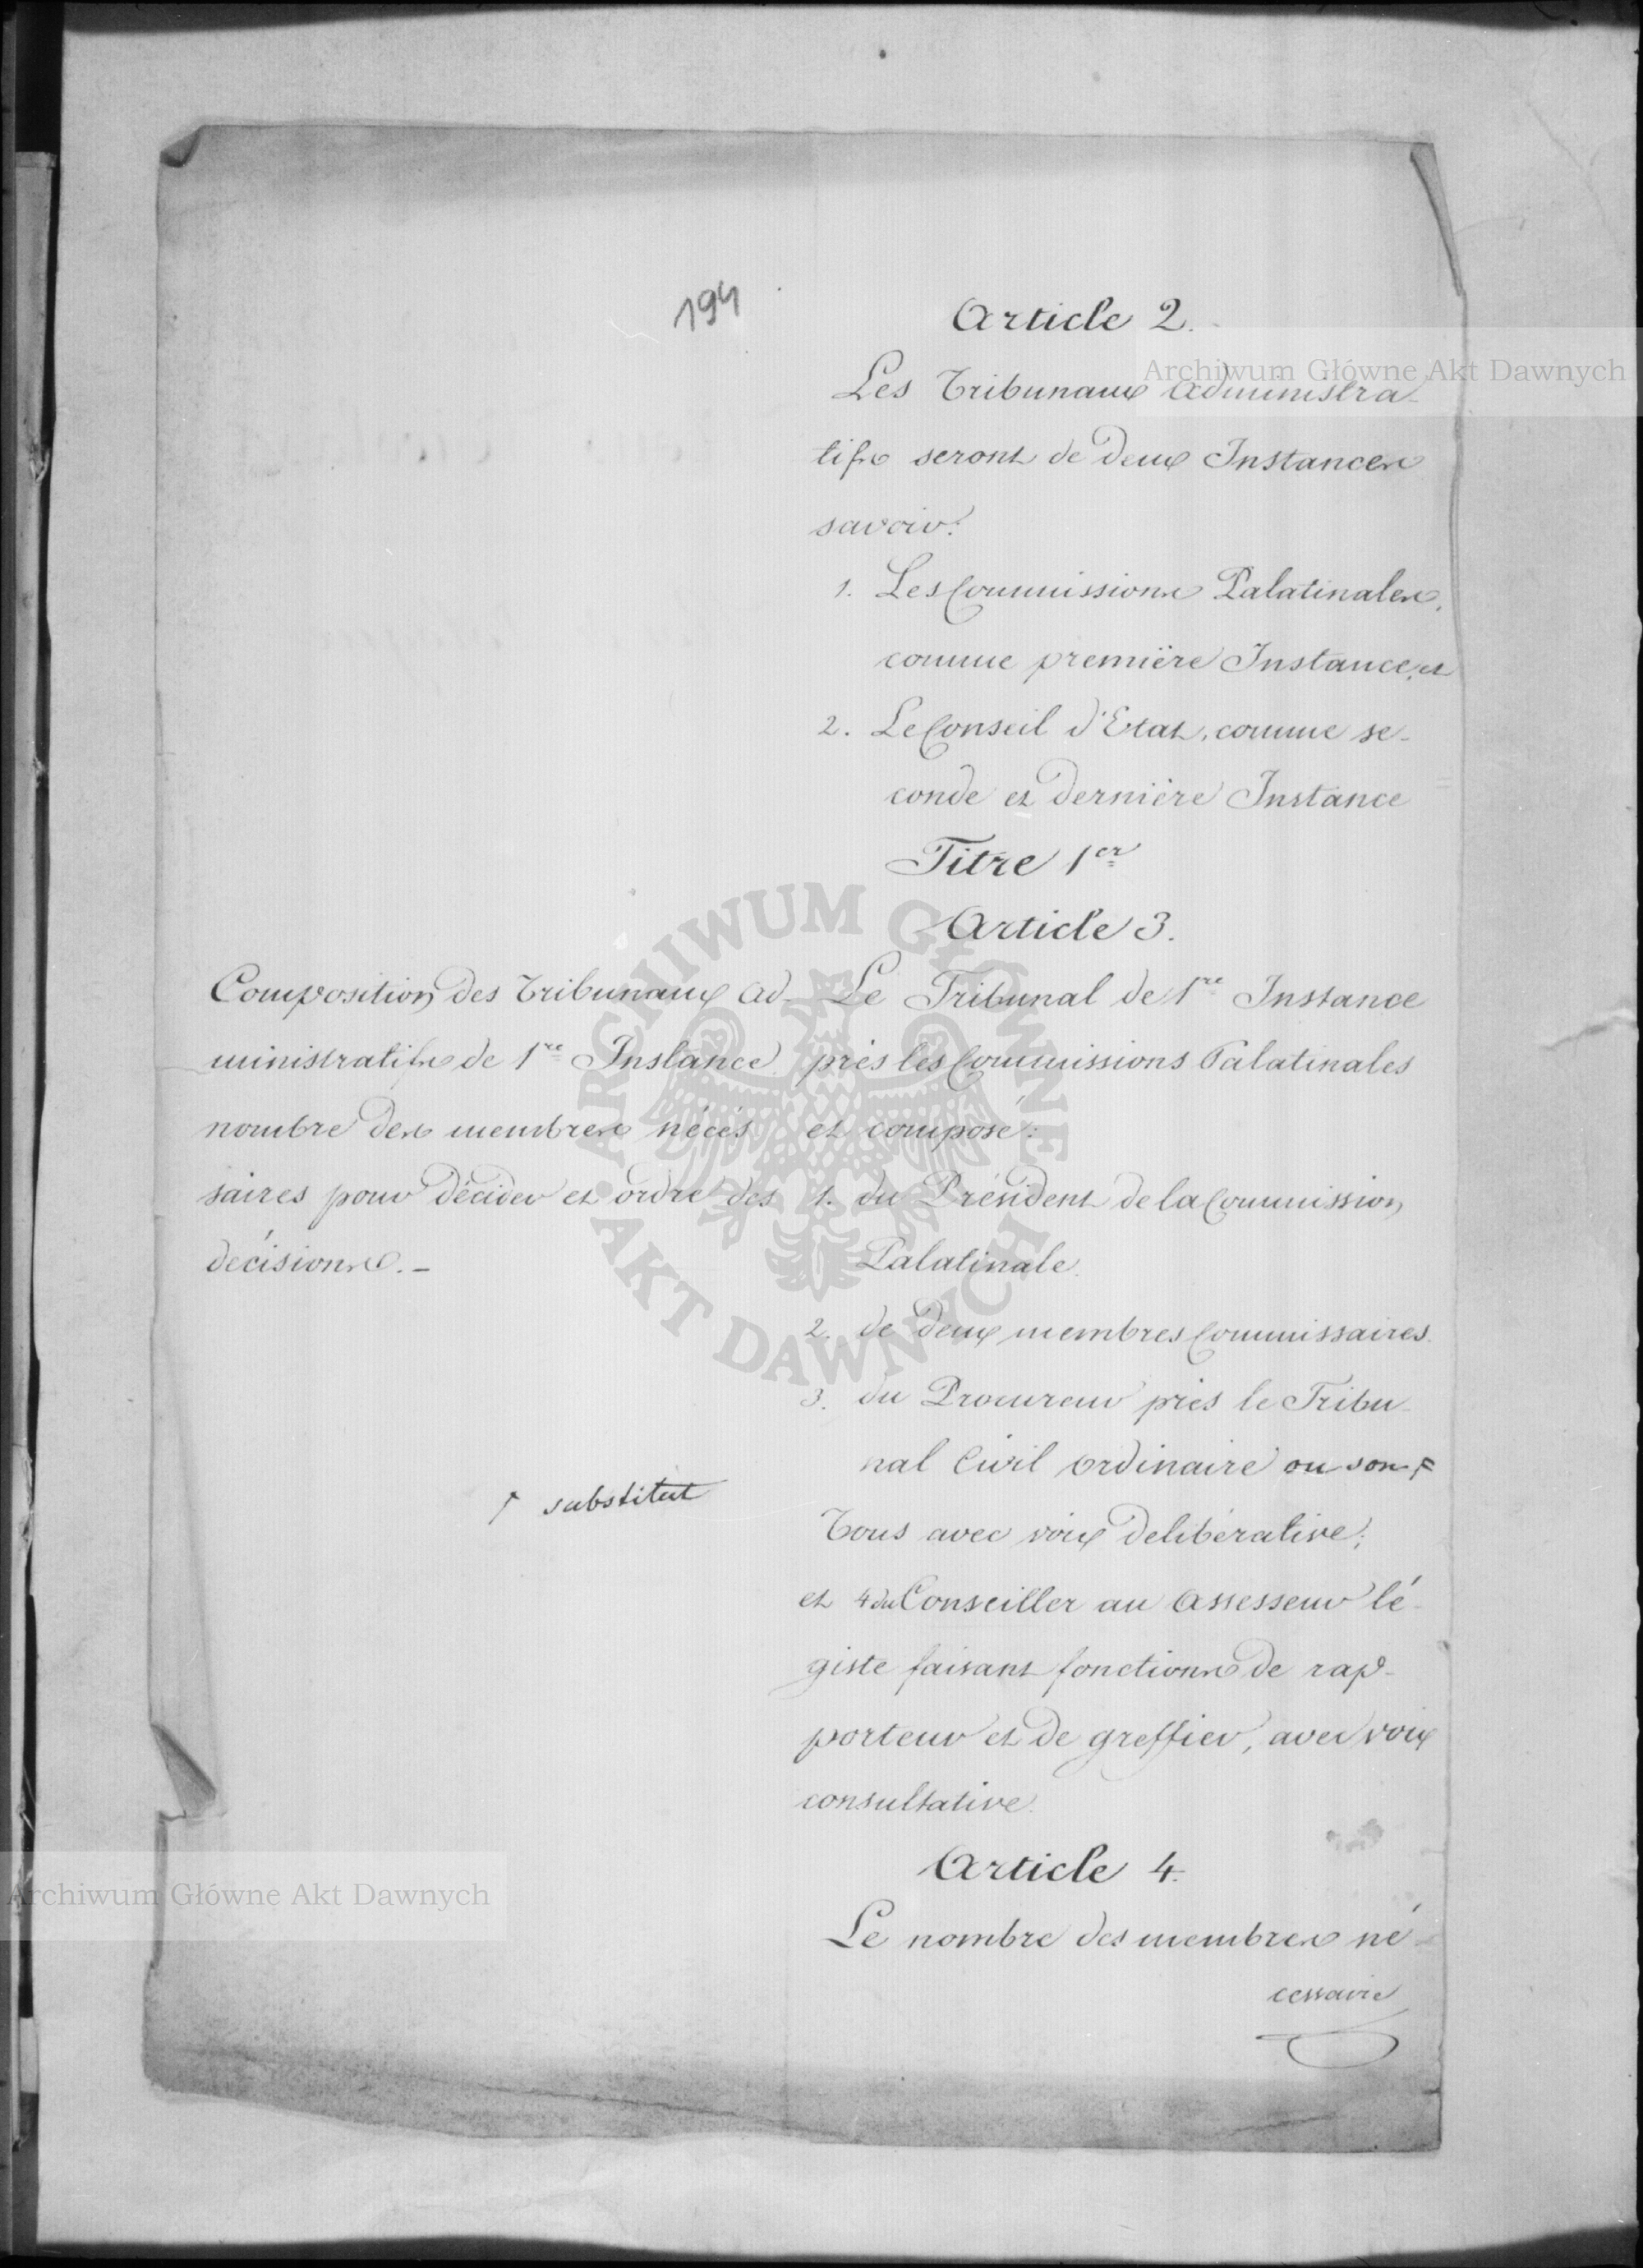 194
Article 2.
Les Tribunaux Administra-
tifs seront de deux Instances
savoir:
1. Les Commissions Palatinales,
comme première Instance, et
2. Le Conseil d'Etat, comme se-
conde et dernière Instance
Titre 1er
Article 3.
Composition des Tribunaux Ad-
ministratifs de 1re Instance
nombre des membres nécés
saires pour décider et ordre des
décisions. -
Le Tribunal de 1re Instance
près les Commissions Palatinales
et composé:
1. du Président de la Commission
Palatinale.
2. de deux membres Commissaires.
3. du Procureur près le Tribu-
nal Civil ordinaire ou son
substitut
Tous avec voix delibérative;
et 4 du Conseiller au Assesseur lé-
giste faisant fonctions de rap-
porteur et de greffier, avec voix
consultative.
Article 4.
Le nombre des membres né-
cessaire
Archiwum Główne Akt Dawnych
ARCHIWUM GŁÓWNE AKT DAWNYCH
Archiwum Główne Akt Dawnych